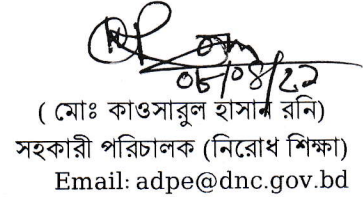 ০৮/০৪/২১
( মোঃ কাওসারুল হাসান রনি)
সহকারী পরিচালক (নিরোধ শিক্ষা)
Email: adpe@dnc.gov.bd